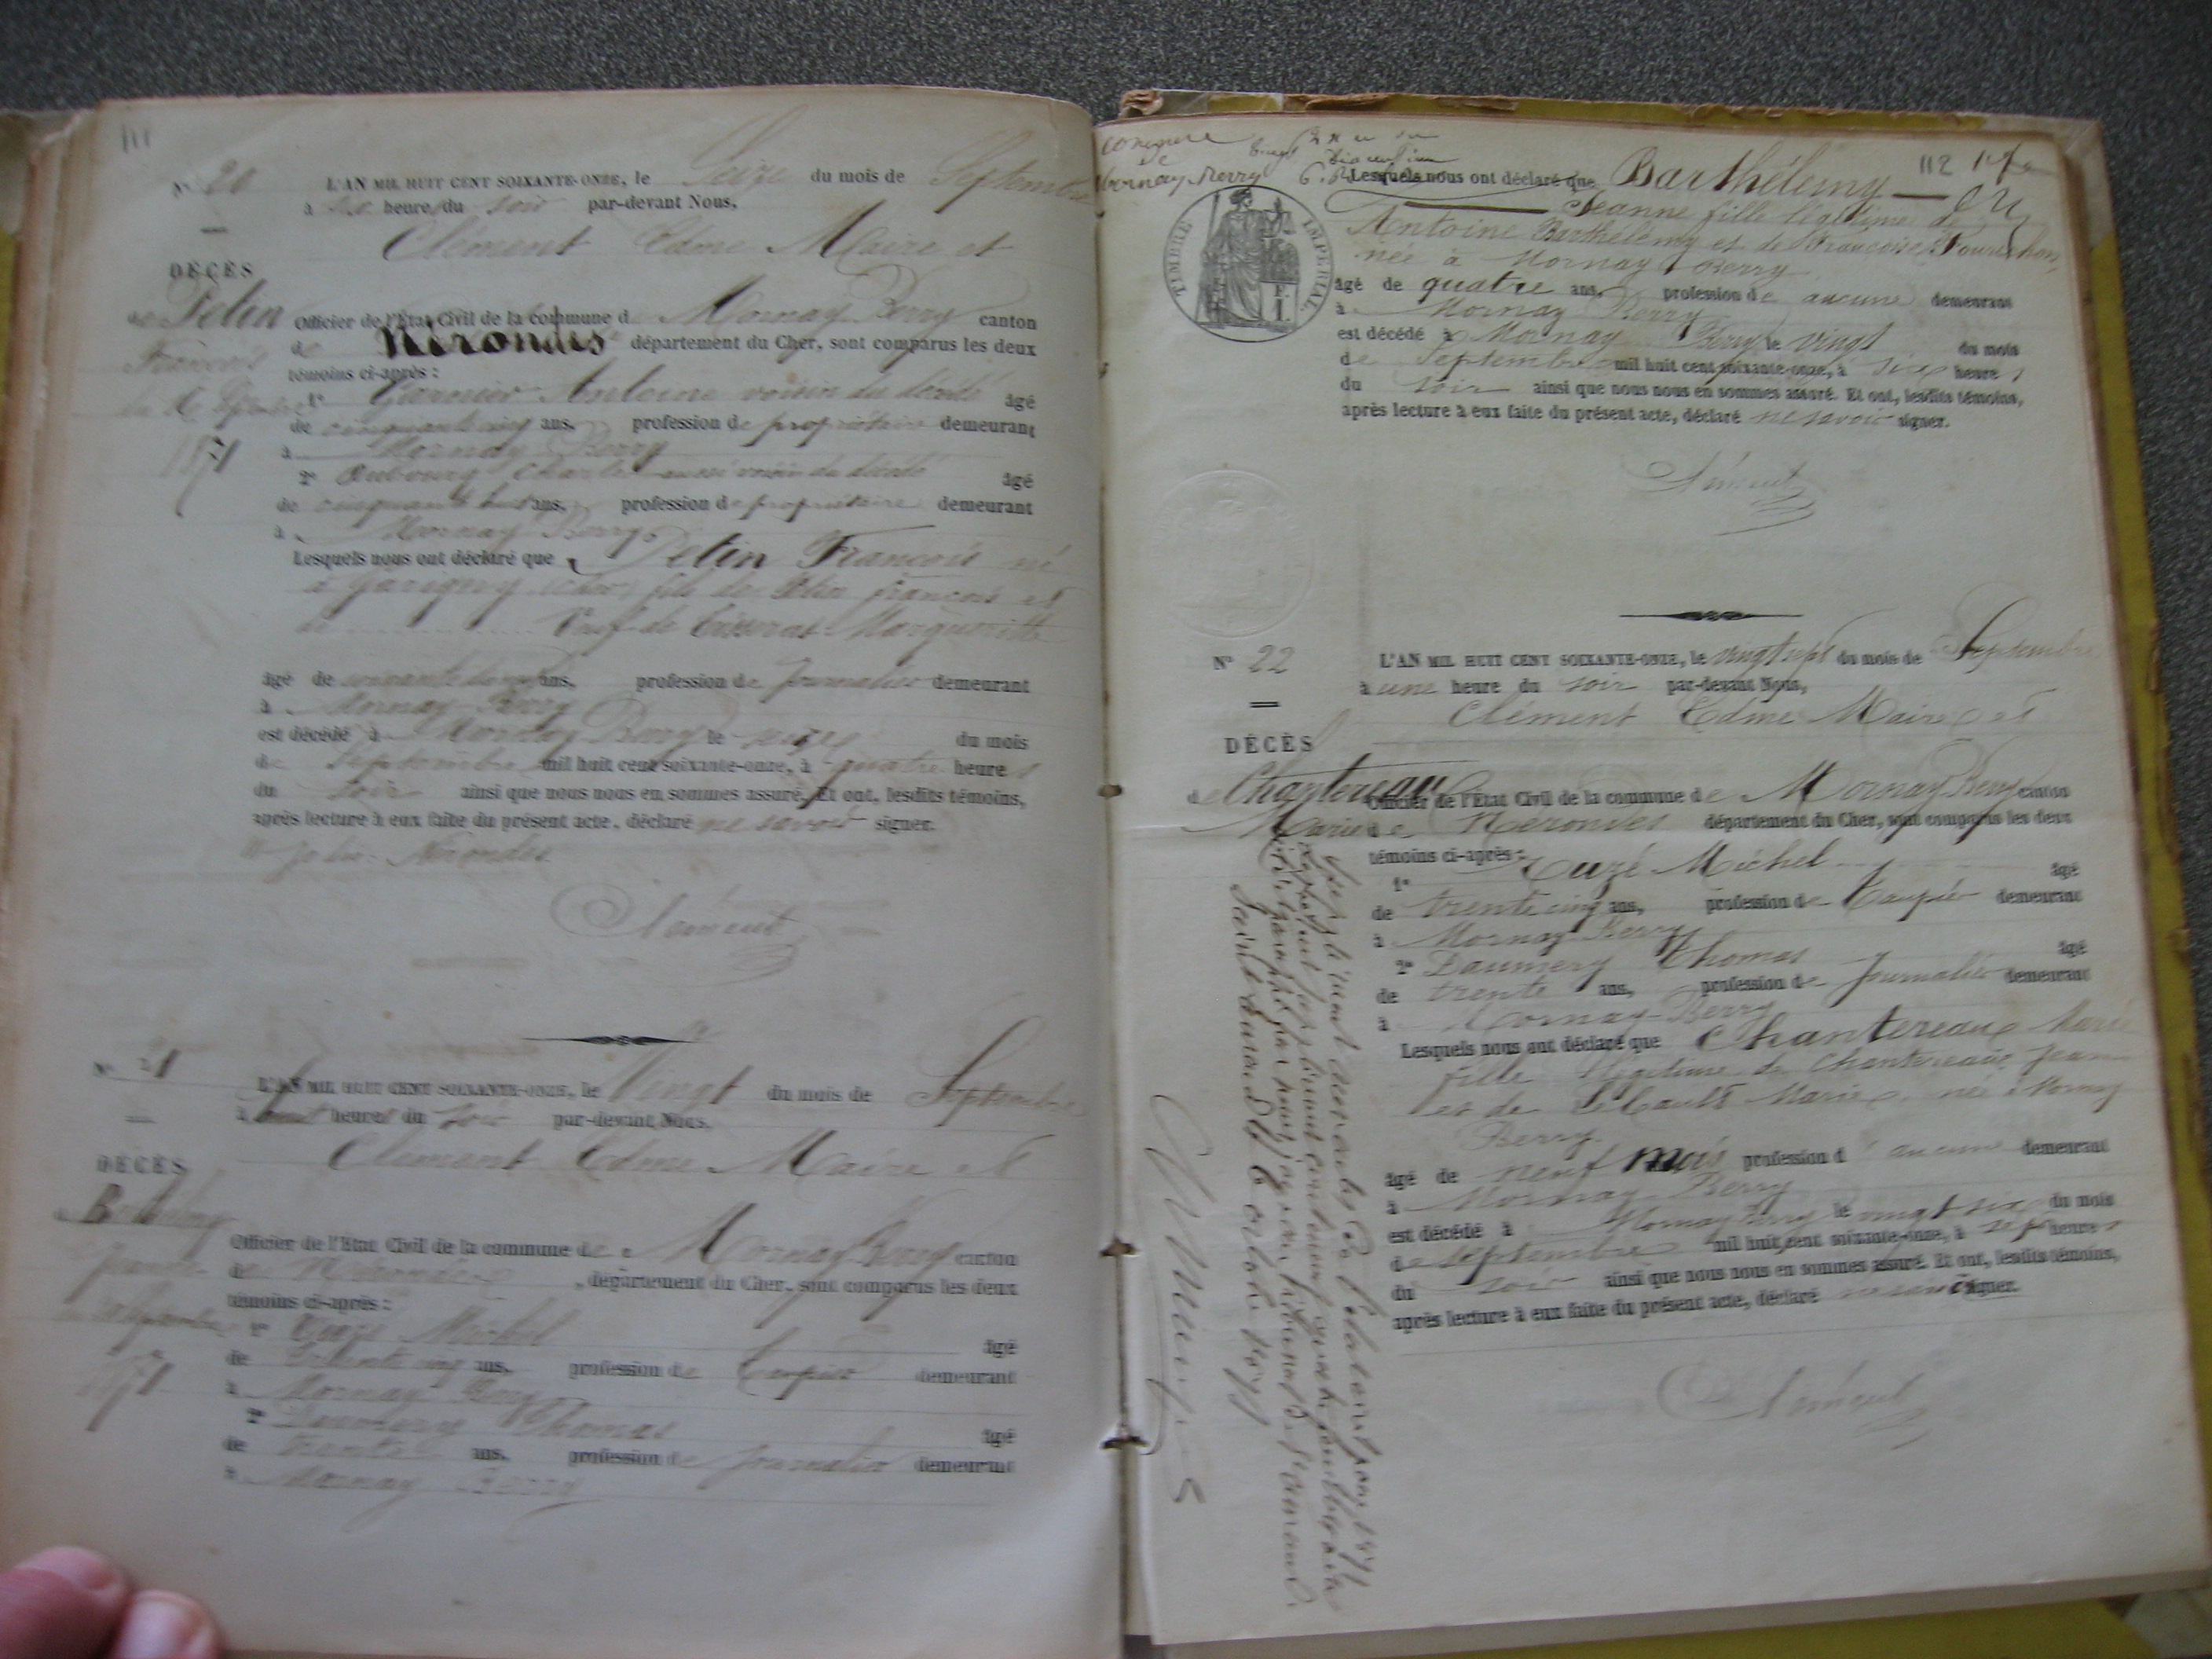 111
N° 20
L'AN MIL HUIT CENT SOIXANTE-ONZE, le Seize du mois de Septembre
à heure du soir par-devant Nous,
Clément Edme Maire et
DÉCÈS
de Petin
François
le 16 Septembre
1871
Officier de l'État Civil de la commune de Mornay Berry canton
de Nérondes département du Cher, sont comparus les deux
témoins ci-après :
1° Garnier Antoine voisin du décédé âgé
de cinquante cinq ans, profession de propriétaire demeurant
à Mornay Berry
2° Aubourg Charles aussi voisin du décédé âgé
de cinquante huit ans, profession de propriétaire demeurant
à Mornay Berry
Lesquels nous ont déclaré que Petin François né
à Garigny (Cher) fils de Petin François et
de Veuf de Tisserat Marguerite
âgé de soixante ans, profession de Journalier demeurant
à Mornay Berry
est décédé à Mornay Berry le seize du mois
de Septembre mil huit cent soixante-onze, à quatre heures
du soir ainsi que nous nous en sommes assuré. Et ont, lesdits témoins,
après lecture à eux faite du présent acte, déclaré ne savoir signer.
Nérondes
Clément
N° 21
L'AN MIL HUIT CENT SOIXANTE-ONZE, le Vingt du mois de Septembre
à heures du soir par-devant Nous,
Clément Edme Maire et
DÉCÈS
de Barthélemy
Jeanne
le 20 Septembre
1871
Officier de l'État Civil de la commune de Mornay Berry canton
de Nérondes, département du Cher, sont comparus les deux
témoins ci-après :
1° Michel âgé
de trente cinq ans, profession de Taupier demeurant
à Mornay Berry
2° Daumery Thomas âgé
de trente ans, profession de Journalier demeurant
à Mornay Berry
commune
de
Mornay Berry
112
TIMBRE IMPERIAL
Lesquels nous ont déclaré que Barthélemy
Jeanne fille légitime de
Antoine Barthélemy et de Françoise Fourichon
née à Mornay Berry
âgé de quatre ans, profession de aucune demeurant
à Mornay Berry
est décédé à Mornay Berry le vingt du mois
de Septembre mil huit cent soixante-onze, à six heures
du soir ainsi que nous nous en sommes assuré. Et ont, lesdits témoins,
après lecture à eux faite du présent acte, déclaré ne savoir signer.
Clément
N° 22
L'AN MIL HUIT CENT SOIXANTE-ONZE, le vingt sept du mois de Septembre
à une heure du soir par-devant Nous,
Clément Edme Maire et
DÉCÈS
de Chantereau
Marie
Officier de l'État Civil de la commune de Mornay Berry canton
de Nérondes département du Cher, sont comparus les deux
témoins ci-après :
1° Michel âgé
de trente cinq ans, profession de Taupier demeurant
à Mornay Berry
2° Daumery Thomas âgé
de trente ans, profession de Journalier demeurant
à Mornay-Berry
Lesquels nous ont déclaré que Chantereau Marie
fille légitime de Chantereau Jean
et de Marie née à Mornay
Berry
âgé de neuf mois profession d'aucune demeurant
à Mornay Berry
est décédé à Mornay Berry le vingt six du mois
de Septembre mil huit cent soixante-onze, à sept heures
du soir ainsi que nous nous en sommes assuré. Et ont, lesdits témoins,
après lecture à eux faite du présent acte, déclaré ne savoir signer.
Clément